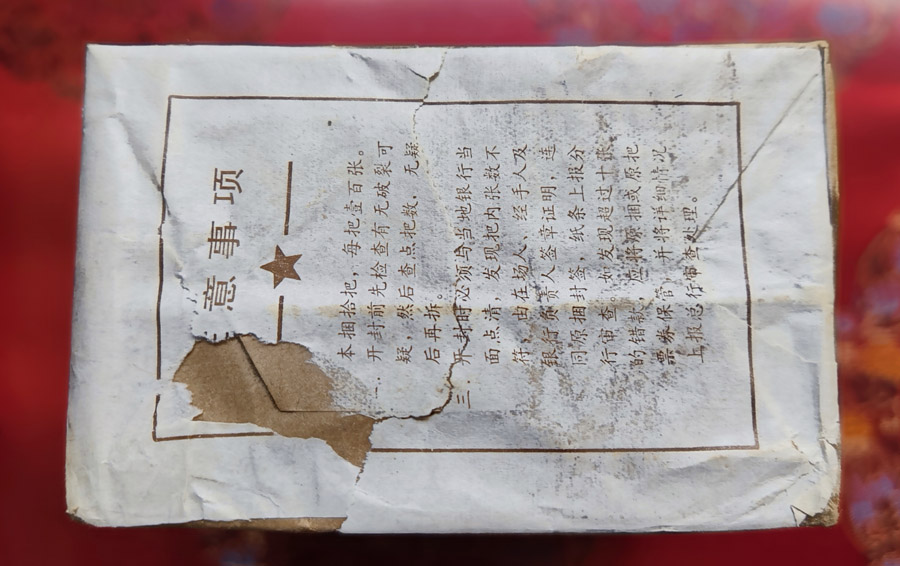 意事项
本捆拾把，每把壹百张。
开封前先检查有无破裂可
疑，然后查点把数，无疑
后再拆。
三．开封时必须与当地银行当
面点清，发现把内张数不
符，由在场人、经手人及
银行负责人签章证明，连
同原捆封签，纸条上报分
行审查。如发现超过十张
的错款，应将原捆或原把
票券保管，并将详细情况
上报总行审查处理。